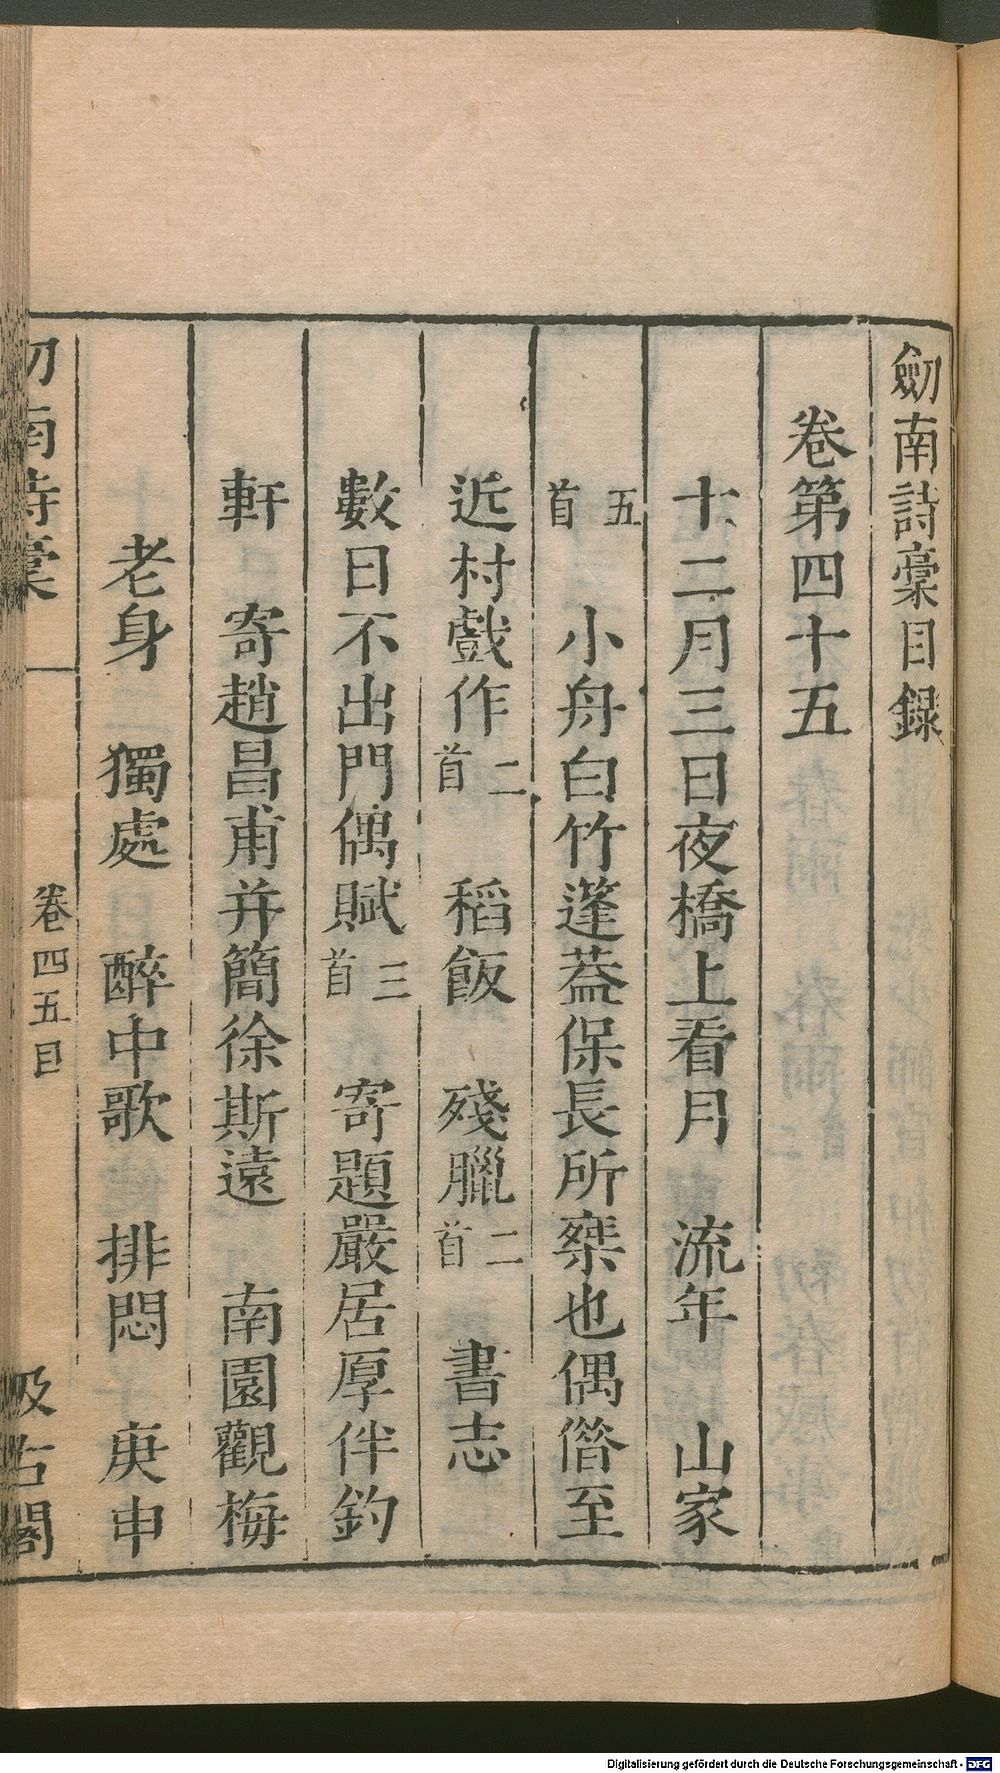 劒南詩稾目録
卷第四十五
十二月三日夜橋上看月 流年 山家
五首 小舟白竹蓬葢保長所椉也偶偺至
近村戲作二首 稻飯 殘臘二首 書志
數日不出門偶賦三首 寄題嚴居厚伴釣
軒 寄趙昌甫并簡徐斯遠 南園觀梅
老身 獨處 醉中歌 排悶 庚申
劒南詩稾 卷四五目 汲古閣
Digitalisierung gefördert durch die Deutsche Forschungsgemeinschaft - DFG